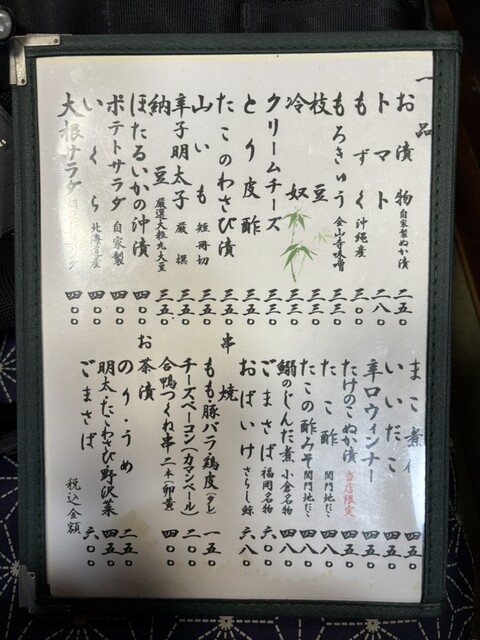 一品
お漬物 自家製ぬか漬 二五〇
トマト 二八〇
もずく 沖縄産 三〇〇
もろきゅう 金山寺味噌 三三〇
枝豆 三三〇
冷奴 三三〇
クリームチーズ 三三〇
とり皮酢 三五〇
たこのわさび漬 三五〇
山いも 短冊切 三五〇
辛子明太子 厳撰 三五〇
納豆 厳選大粒丸大豆 三五〇
ほたるいかの沖漬 四〇〇
ポテトサラダ 自家製 四〇〇
いくら 北海道産 四〇〇
大根サラダ 四〇〇
まこ煮付 四五〇
いいだこ 四五〇
辛口ウィンナー 四五〇
たけのこぬか漬 当店限定 四五〇
たこ酢 関門地だこ 四八〇
たこの酢みそ 関門地だこ 四八〇
鰯のじんだ煮 小倉名物 四八〇
ごまさば 福岡名物 六八〇
おばいけ さらし鯨 六八〇
串焼
もも・豚バラ・鶏皮(タレ) 一五〇
チーズベーコン(カマンベール) 二〇〇
合鴨つくね串 二本(卵黄) 四〇〇
お茶漬
のり・うめ 二五〇
明太・たこわさび・野沢菜 四五〇
ごまさば 六〇〇
税込金額